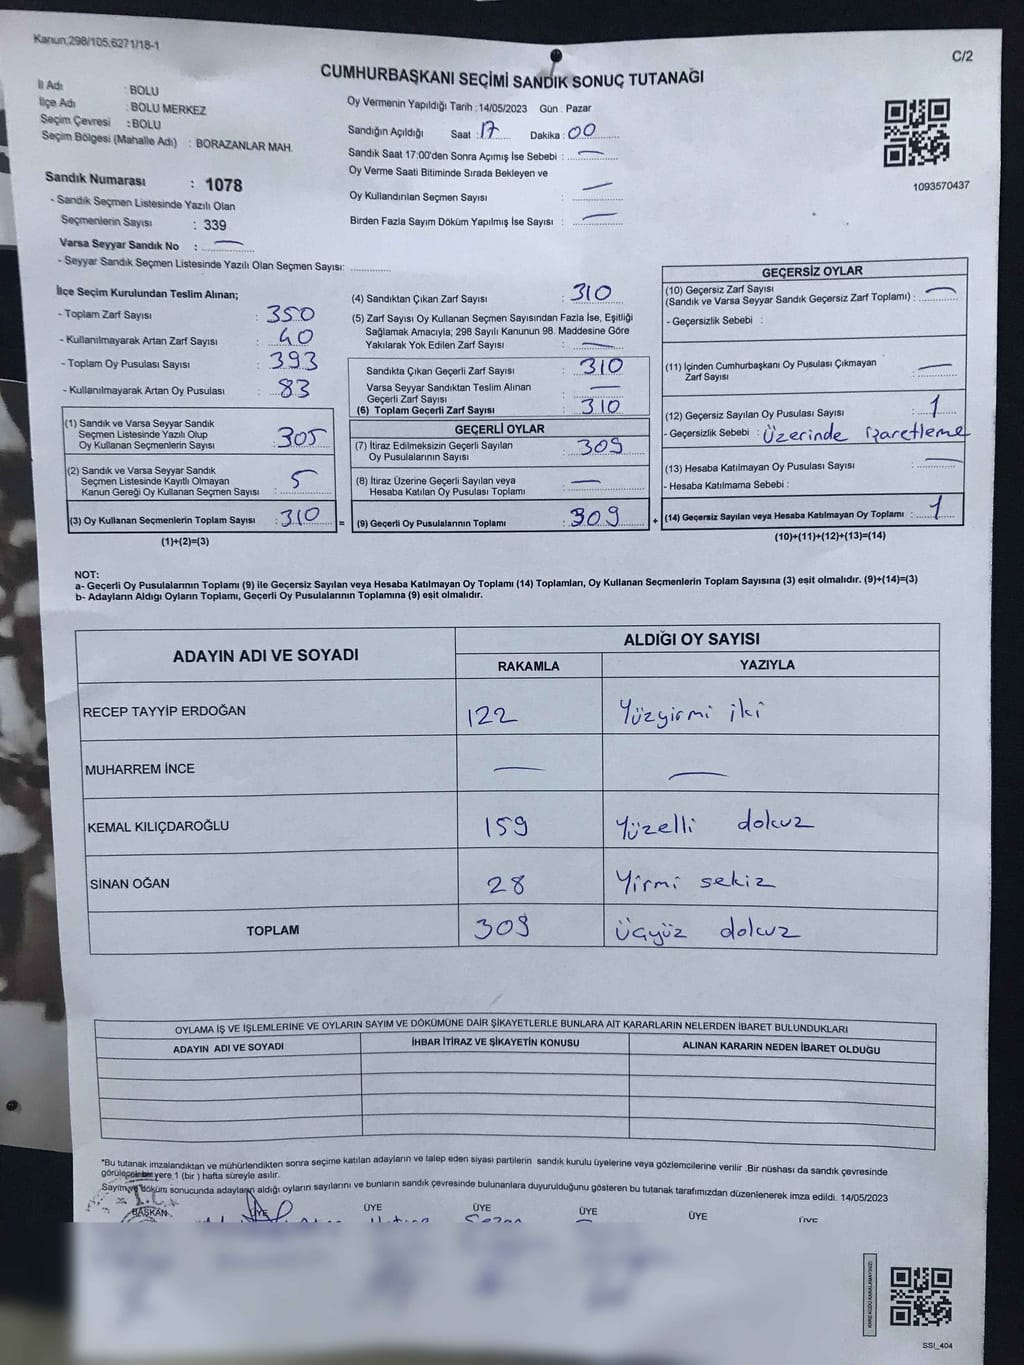 Kanun;298/105;6271/18-1
C/2
CUMHURBAŞKANI SEÇİMİ SANDIK SONUÇ TUTANAĞI
İl Adı : BOLU
İlçe Adı : BOLU MERKEZ
Seçim Çevresi : BOLU
Seçim Bölgesi (Mahalle Adı) : BORAZANLAR MAH.
Sandık Numarası : 1078
- Sandık Seçmen Listesinde Yazılı Olan
Seçmenlerin Sayısı : 339
Varsa Seyyar Sandık No : —
- Seyyar Sandık Seçmen Listesinde Yazılı Olan Seçmen Sayısı:
Oy Vermenin Yapıldığı Tarih : 14/05/2023 Gün : Pazar
Sandığın Açıldığı Saat : 17 Dakika : 00
Sandık Saat 17:00'den Sonra Açımış İse Sebebi : —
Oy Verme Saati Bitiminde Sırada Bekleyen ve
Oy Kullandırılan Seçmen Sayısı : —
Birden Fazla Sayım Döküm Yapılmış İse Sayısı : —
1093570437
İlçe Seçim Kurulundan Teslim Alınan;
- Toplam Zarf Sayısı : 350
- Kullanılmayarak Artan Zarf Sayısı : 40
- Toplam Oy Pusulası Sayısı : 393
- Kullanılmayarak Artan Oy Pusulası : 83
(1) Sandık ve Varsa Seyyar Sandık
Seçmen Listesinde Yazılı Olup
Oy Kullanan Seçmenlerin Sayısı : 305
(2) Sandık ve Varsa Seyyar Sandık
Seçmen Listesinde Kayıtlı Olmayan
Kanun Gereği Oy Kullanan Seçmen Sayısı : 5
(3) Oy Kullanan Seçmenlerin Toplam Sayısı : 310
(1)+(2)=(3)
(4) Sandıktan Çıkan Zarf Sayısı : 310
(5) Zarf Sayısı Oy Kullanan Seçmen Sayısından Fazla İse, Eşitliği
Sağlamak Amacıyla; 298 Sayılı Kanunun 98. Maddesine Göre
Yakılarak Yok Edilen Zarf Sayısı : —
Sandıkta Çıkan Geçerli Zarf Sayısı : 310
Varsa Seyyar Sandıktan Teslim Alınan
Geçerli Zarf Sayısı : —
(6) Toplam Geçerli Zarf Sayısı : 310
GEÇERLİ OYLAR
(7) İtiraz Edilmeksizin Geçerli Sayılan
Oy Pusulalarının Sayısı : 309
(8) İtiraz Üzerine Geçerli Sayılan veya
Hesaba Katılan Oy Pusulası Toplamı : —
= (9) Geçerli Oy Pusulalarının Toplamı : 309 +
GEÇERSİZ OYLAR
(10) Geçersiz Zarf Sayısı
(Sandık ve Varsa Seyyar Sandık Geçersiz Zarf Toplamı) : —
- Geçersizlik Sebebi :
(11) İçinden Cumhurbaşkanı Oy Pusulası Çıkmayan
Zarf Sayısı : —
(12) Geçersiz Sayılan Oy Pusulası Sayısı : 1
- Geçersizlik Sebebi : Üzerinde işaretleme
(13) Hesaba Katılmayan Oy Pusulası Sayısı : —
- Hesaba Katılmama Sebebi :
(14) Geçersiz Sayılan veya Hesaba Katılmayan Oy Toplamı : 1
(10)+(11)+(12)+(13)=(14)
NOT:
a- Geçerli Oy Pusulalarının Toplamı (9) ile Geçersiz Sayılan veya Hesaba Katılmayan Oy Toplamı (14) Toplamları, Oy Kullanan Seçmenlerin Toplam Sayısına (3) eşit olmalıdır. (9)+(14)=(3)
b- Adayların Aldığı Oyların Toplamı, Geçerli Oy Pusulalarının Toplamına (9) eşit olmalıdır.
ADAYIN ADI VE SOYADI ALDIĞI OY SAYISI
RAKAMLA YAZIYLA
RECEP TAYYİP ERDOĞAN 122 Yüzyirmi iki
MUHARREM İNCE — —
KEMAL KILIÇDAROĞLU 159 Yüzelli dokuz
SİNAN OĞAN 28 Yirmi sekiz
TOPLAM 309 Üçyüz dokuz
OYLAMA İŞ VE İŞLEMLERİNE VE OYLARIN SAYIM VE DÖKÜMÜNE DAİR ŞİKAYETLERLE BUNLARA AİT KARARLARIN NELERDEN İBARET BULUNDUKLARI
ADAYIN ADI VE SOYADI İHBAR İTİRAZ VE ŞİKAYETİN KONUSU ALINAN KARARIN NEDEN İBARET OLDUĞU
*Bu tutanak imzalandıktan ve mühürlendikten sonra seçime katılan adayların ve talep eden siyasi partilerin sandık kurulu üyelerine veya gözlemcilerine verilir .Bir nüshası da sandık çevresinde
görülecek bir yere 1 (bir ) hafta süreyle asılır.
Sayım ve döküm sonucunda adayların aldığı oyların sayılarını ve bunların sandık çevresinde bulunanlara duyurulduğunu gösteren bu tutanak tarafımızdan düzenlenerek imza edildi. 14/05/2023
BAŞKAN ÜYE ÜYE ÜYE ÜYE ÜYE ÜYE
SSI_404